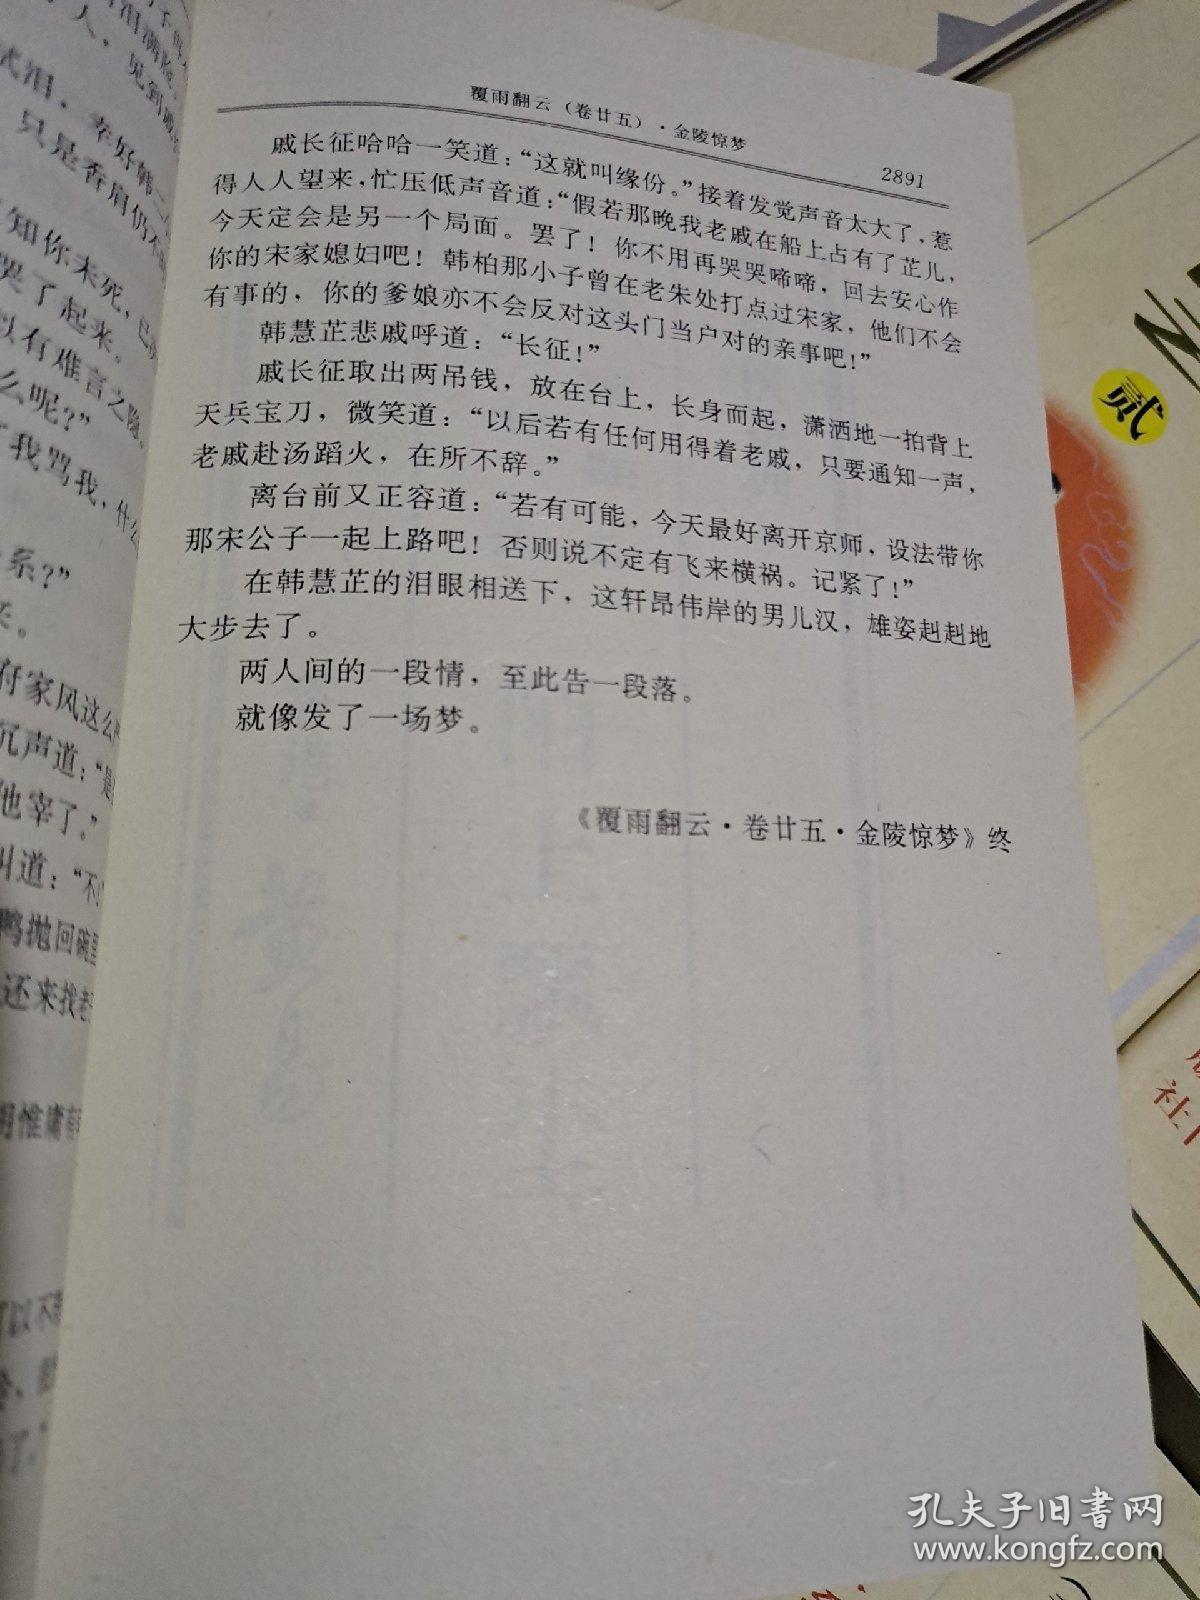 覆雨翻云（卷廿五）·金陵惊梦
2891
戚长征哈哈一笑道：“这就叫缘份。”接着发觉声音太大了，惹
得人人望来，忙压低声音道：“假若那晚我老戚在船上占有了芷儿，
今天定会是另一个局面。罢了！你不用再哭哭啼啼，回去安心作
你的宋家媳妇吧！韩柏那小子曾在老朱处打点过宋家，他们不会
有事的，你的爹娘亦不会反对这头门当户对的亲事吧！”
韩慧芷悲戚呼道：“长征！”
戚长征取出两吊钱，放在台上，长身而起，潇洒地一拍背上
天兵宝刀，微笑道：“以后若有任何用得着老戚，只要通知一声，
老戚赴汤蹈火，在所不辞。”
离台前又正容道：“若有可能，今天最好离开京师，设法带你
那宋公子一起上路吧！否则说不定有飞来横祸。记紧了！”
在韩慧芷的泪眼相送下，这轩昂伟岸的男儿汉，雄姿赳赳地
大步去了。
两人间的一段情，至此告一段落。
就像发了一场梦。
《覆雨翻云·卷廿五·金陵惊梦》终
人，见到
拭泪，幸好韩二
只是香肩仍不
知你未死，已
哭了起来。
以有难言之隐。
么呢？”
了我骂我，什么
系？”
来。
府家风这么
沉声道：“是
他宰了。”
叫道：“不
鸭抛回碗里
还来找老
惟庸有
可以不
贰
社
孔夫子旧书网
www.kongfz.com